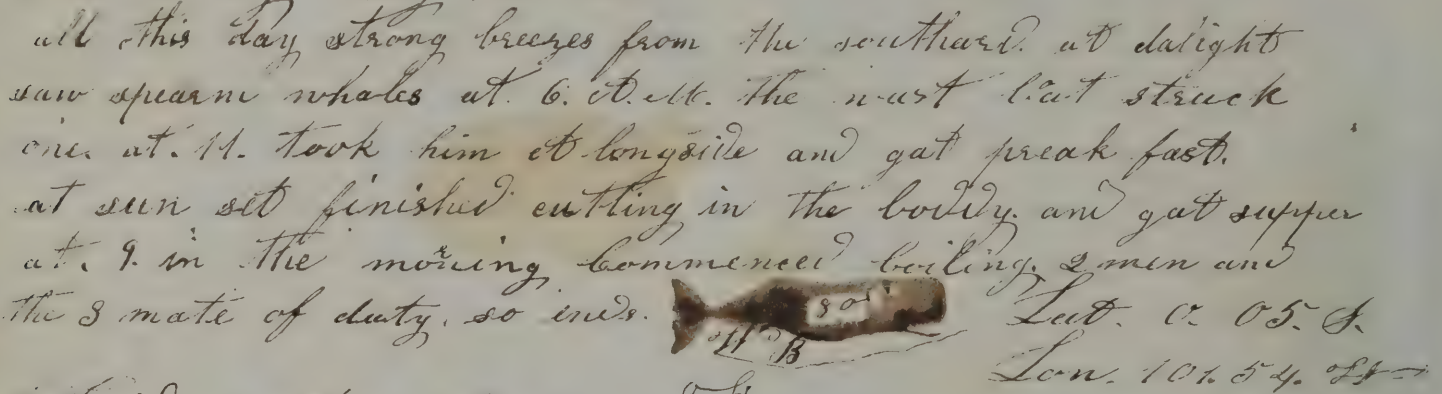 all this day strong breezes from the southard. at dalight
saw spearm whales at. 6. A.M. the wast boat struck
one. at. 11. took him A longside and gat preak fast.
at sun set finished cutting in the boddy. and gat supper
at. 9. in the morning commenced boiling. 2 men and
the 3 mate of duty. so ends. 80
W B
Lat. 0. 05. S.
Lon. 101. 54.